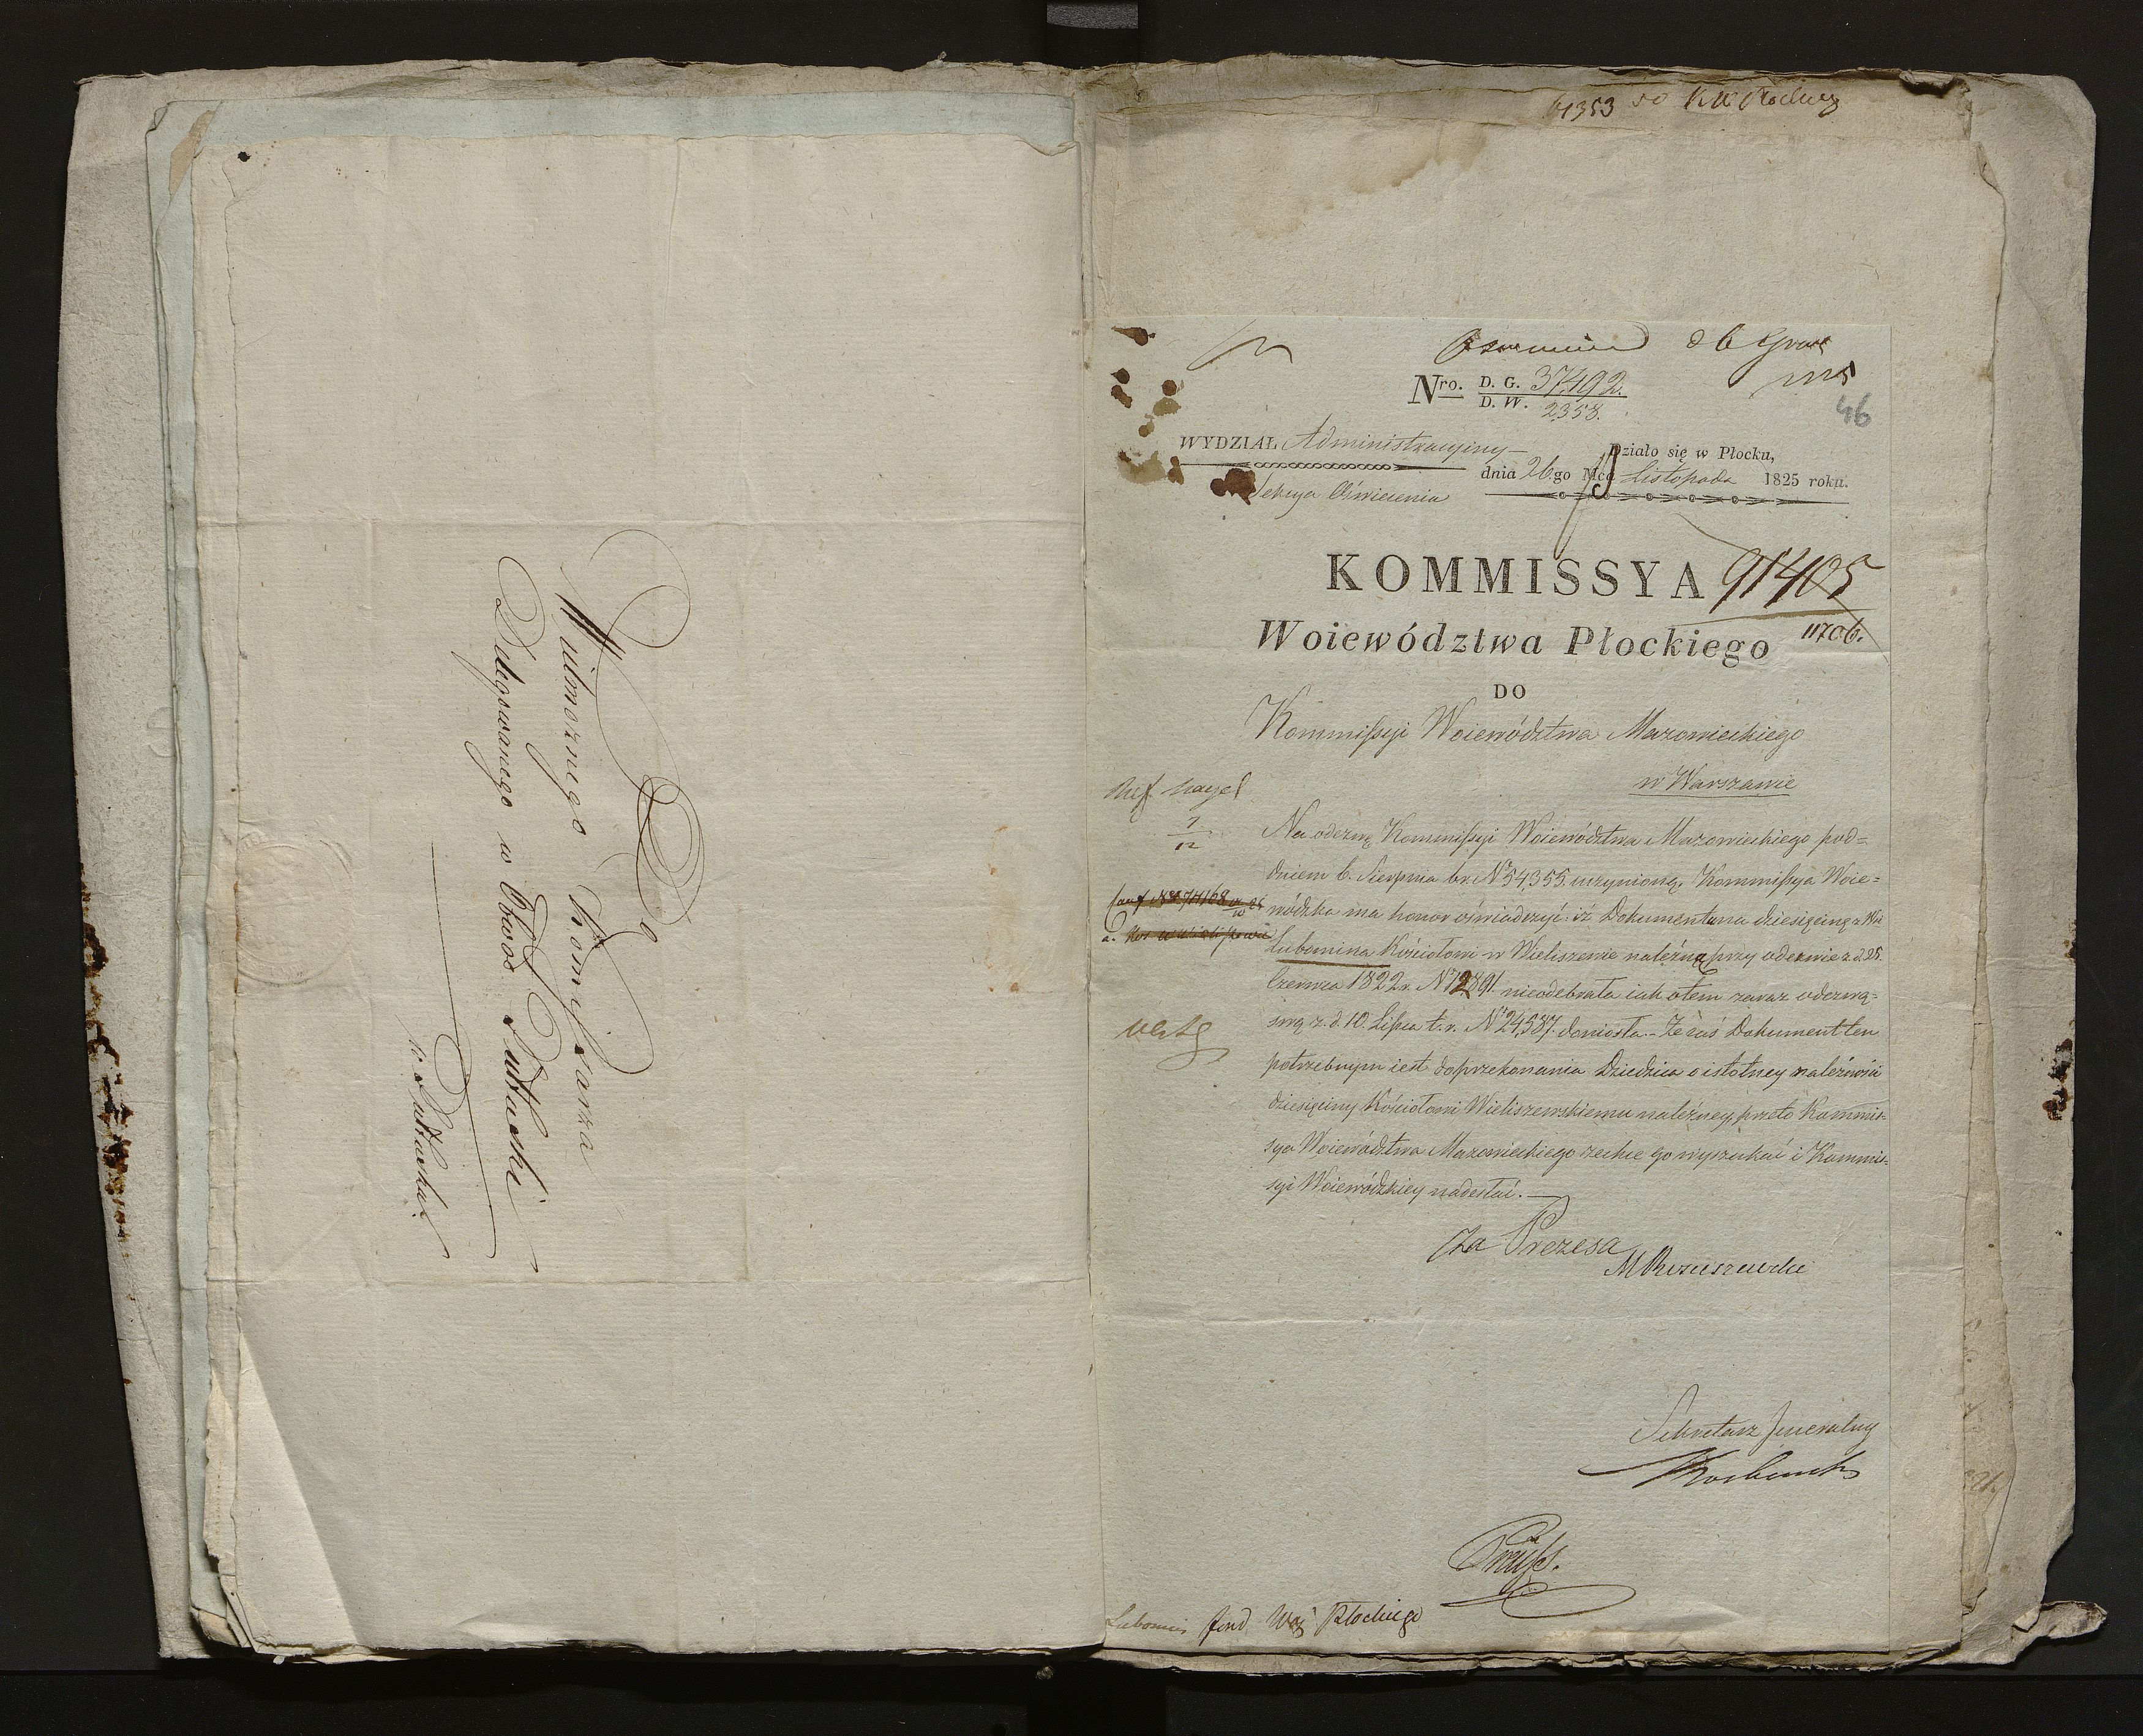 Do
Wielmożnego Kommissarza
Delegowanego w Obwod. Pułtuski
w Pułtusku
KW Płockiey
46
Nro. D. G. 37,492.
D. W. 2358.
WYDZIAŁ Administracyiny
Działo się w Płocku,
dnia 26.go Mca Listopada 1825 roku.
Sekcya Oświecenia
KOMMISSYA
91405
11706.
Woiewództwa Płockiego
DO
Kommissyi Woiewództwa Mazowieckiego
w Warszawie
Na odezwę Kommissyi Woiewództwa Mazowieckiego pod=
dniem 6. Sierpnia br. No 54,355. uczynioną, Kommissya Woie=
wódzka ma honor oświadczyć: iż Dokumentu na dziesięcinę z Wsi
Lubomina Kościołowi w Wieliszewie należną przy odezwie z d. 25.
Czerwca 1822 r. No 12891. nieodebrała iak o tem zaraz odezwą=
swą z. d. 10. Lipca t. r. No 24,587. doniosła. Że zaś Dokument ten
potrzebnym iest do przekonania Dziedzica o istotney należności
dziesięciny Kościołowi Wieliszewskiemu należney, przeto Kommis=
sya Woiewództwa Mazowieckiego zechce go wyszukać i Kommis=
syi Woiewódzkiey nadesłać.
Za Prezesa
Sekretarz Jeneralny
Lubomin Woj Płockiego